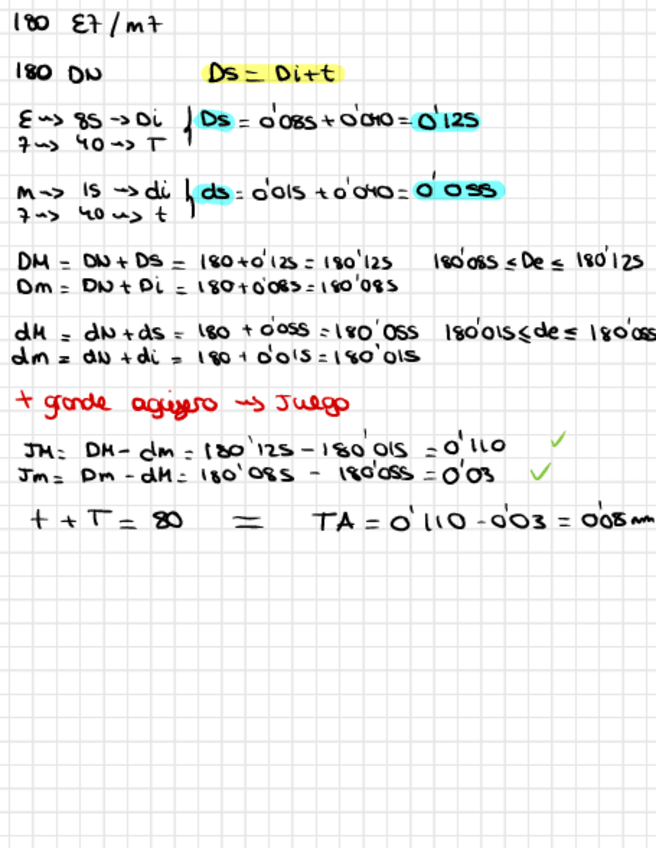 180 E7/m7
180 DN Ds = Di+t
E → 85 → Di } Ds = 0'085 + 0'040 = 0'125
7 → 40 → T
m → 15 → di } ds = 0'015 + 0'040 = 0'055
7 → 40 → t
DM = DN + Ds = 180 + 0'125 = 180'125 180'085 ≤ De ≤ 180'125
Dm = DN + Di = 180 + 0'085 = 180'085
dM = dN + ds = 180 + 0'055 = 180'055 180'015 ≤ de ≤ 180'055
dm = dN + di = 180 + 0'015 = 180'015
+ grande agujero → Juego
JM = DM - dm = 180'125 - 180'015 = 0'110 ✓
Jm = Dm - dM = 180'085 - 180'055 = 0'03 ✓
t + T = 80 = TA = 0'110 - 0'03 = 0'08 mm